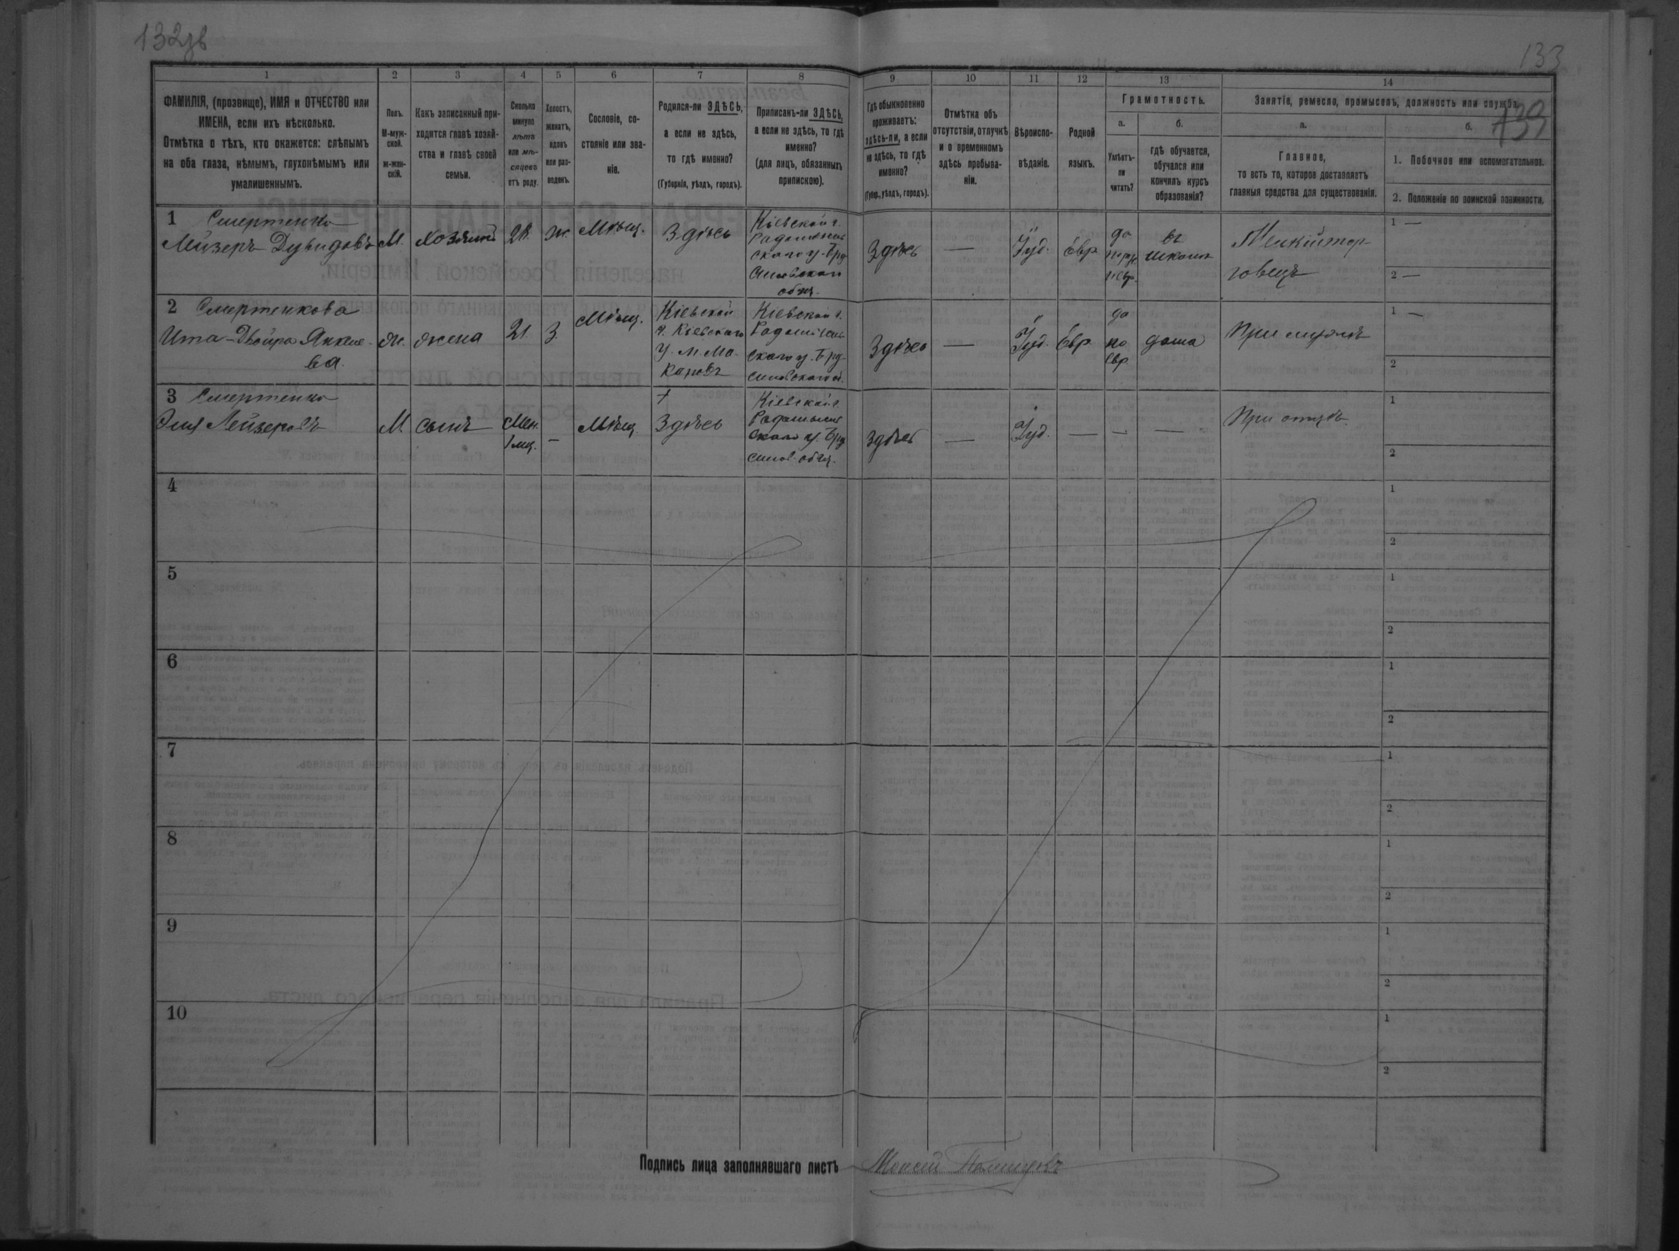 132 об
133
1 2 3 4 5 6 7 8 9 10 11 12 13 14
ФАМИЛІЯ, (прозвище), ИМЯ и ОТЧЕСТВО или
ИМЕНА, если ихъ нѣсколько.
Отмѣтка о тѣхъ, кто окажется: слѣпымъ
на оба глаза, нѣмымъ, глухонѣмымъ или
умалишеннымъ.
Полъ.
М-муж-
ской.
ж-жен-
скій.
Какъ записанный при-
ходится главѣ хозяй-
ства и главѣ своей
семьи.
Сколько
минуло
лѣтъ
или мѣ-
сяцевъ
отъ роду.
Холостъ,
женатъ,
вдовъ
или раз-
веденъ.
Сословіе, со-
стояніе или зва-
ніе.
Родился-ли ЗДѢСЬ,
а если не здѣсь,
то гдѣ именно?
(Губернія, уѣздъ, городъ).
Приписанъ-ли ЗДѢСЬ,
а если не здѣсь, то гдѣ
именно?
(для лицъ, обязанныхъ
припискою).
Гдѣ обыкновенно
проживаетъ:
здѣсь-ли, а если
не здѣсь, то гдѣ
именно?
(Губер., уѣздъ, городъ).
Отмѣтка объ
отсутствіи, отлучкѣ
и о временномъ
здѣсь пребыва-
ніи.
Вѣроиспо-
вѣданіе.
Родной
языкъ.
Грамотность.
а.
Умѣетъ-
ли
читать?
б.
гдѣ обучается,
обучался или
кончилъ курсъ
образованія?
Занятіе, ремесло, промыселъ, должность или служба.
а.
Главное,
то есть то, которое доставляетъ
главныя средства для существованія.
б.
1. Побочное или вспомогательное.
2. Положеніе по воинской повинности.
1 Смертенко
Лейзеръ Дувидовъ М. хозяинъ 21. ж. Мѣщ. Здѣсь
Кіевской г.
Радомысль-
скаго у. Бру-
силовскаго
общ.
Здѣсь — Іуд. Евр.
да
въ
школѣ
Мелкій тор-
говецъ
1 —
2 —
2 Смертенкова
Ита-Двойра Янкеле-
ва. ж. жена 21 З. Мѣщ.
Кіевской
г. Кіевскаго
у. м. Ма-
каровъ
Кіевской г.
Радомысль-
скаго у. Бру-
силовскаго
Здѣсь — Іуд. Евр.
да
по
Евр.
дома
При мужѣ
1 —
2
3 Смертенко
Эля Лейзеровъ М сынъ
Мен.
1 мц.
— Мѣщ.
+
Здѣсь
Кіевской г.
Радомысль-
скаго у. Бру-
силов. общ.
Здѣсь — Іуд. — — —
При отцѣ
1
2
4
1
2
5
1
2
6
1
2
7
1
2
8
1
2
9
1
2
10
1
2
Подпись лица заполнявшаго листъ